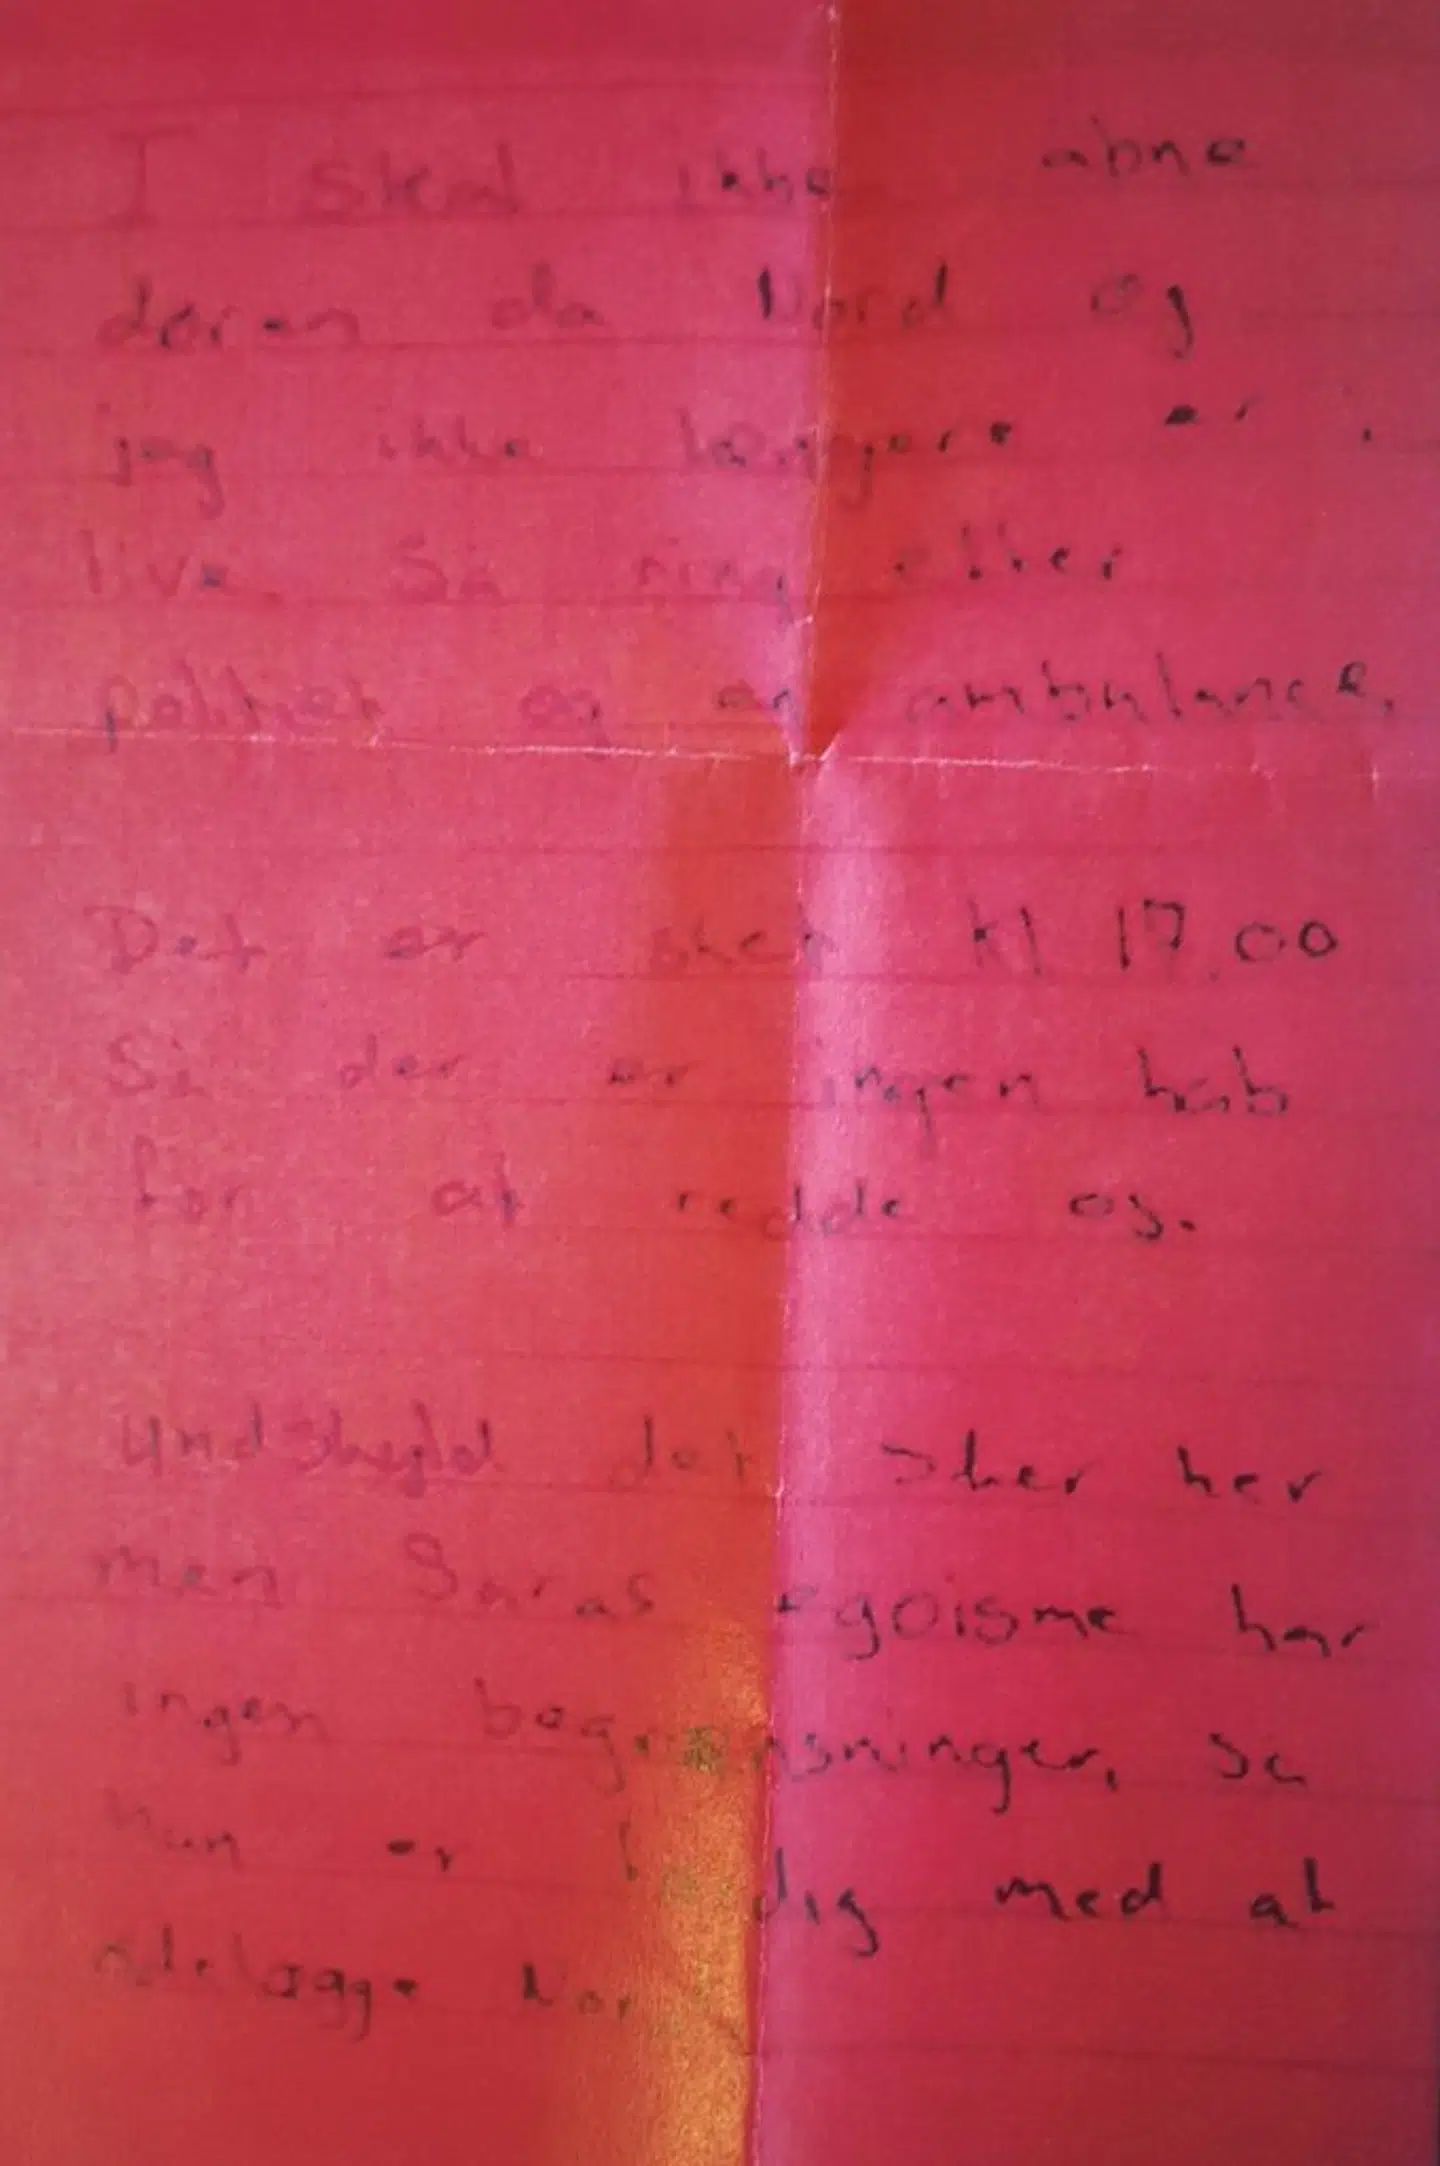 I skal ikke åbne
døren da Nord og
jeg ikke længere er i
live. Så ring efter
politiet og en ambulance.
Det er sket kl 17.00
Så der er ingen håb
for at redde os.
Undskyld det sker her
men Saras egoisme har
ingen begrænsninger, så
hun er ligeglad med at